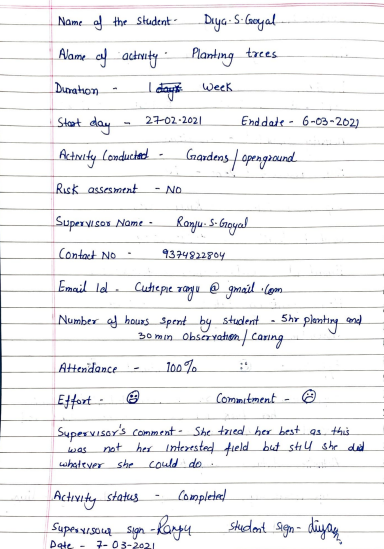 Name of the Student - Diya. S. Goyal
Name of activity - Planting trees
Duration - 1 days week
Start day - 27-02-2021 End date - 6-03-2021
Activity Conducted - Gardens / openground
Risk assesment - NO
Supervisor Name - Ranju. S. Goyal
Contact NO - 9374822804
Email Id - Cutiepie ranju @ gmail .com
Number of hours spent by student - 5hr planting and
30 min observation / caring
Attendance - 100%
Effort - ☺ Commitment - ☹
Supervisor's comment - She tried her best as this
was not her interested field but still she did
whatever she could do .
Activity status - Completed
Supervisour sign - Ranju Student Sign -
Date - 7-03-2021